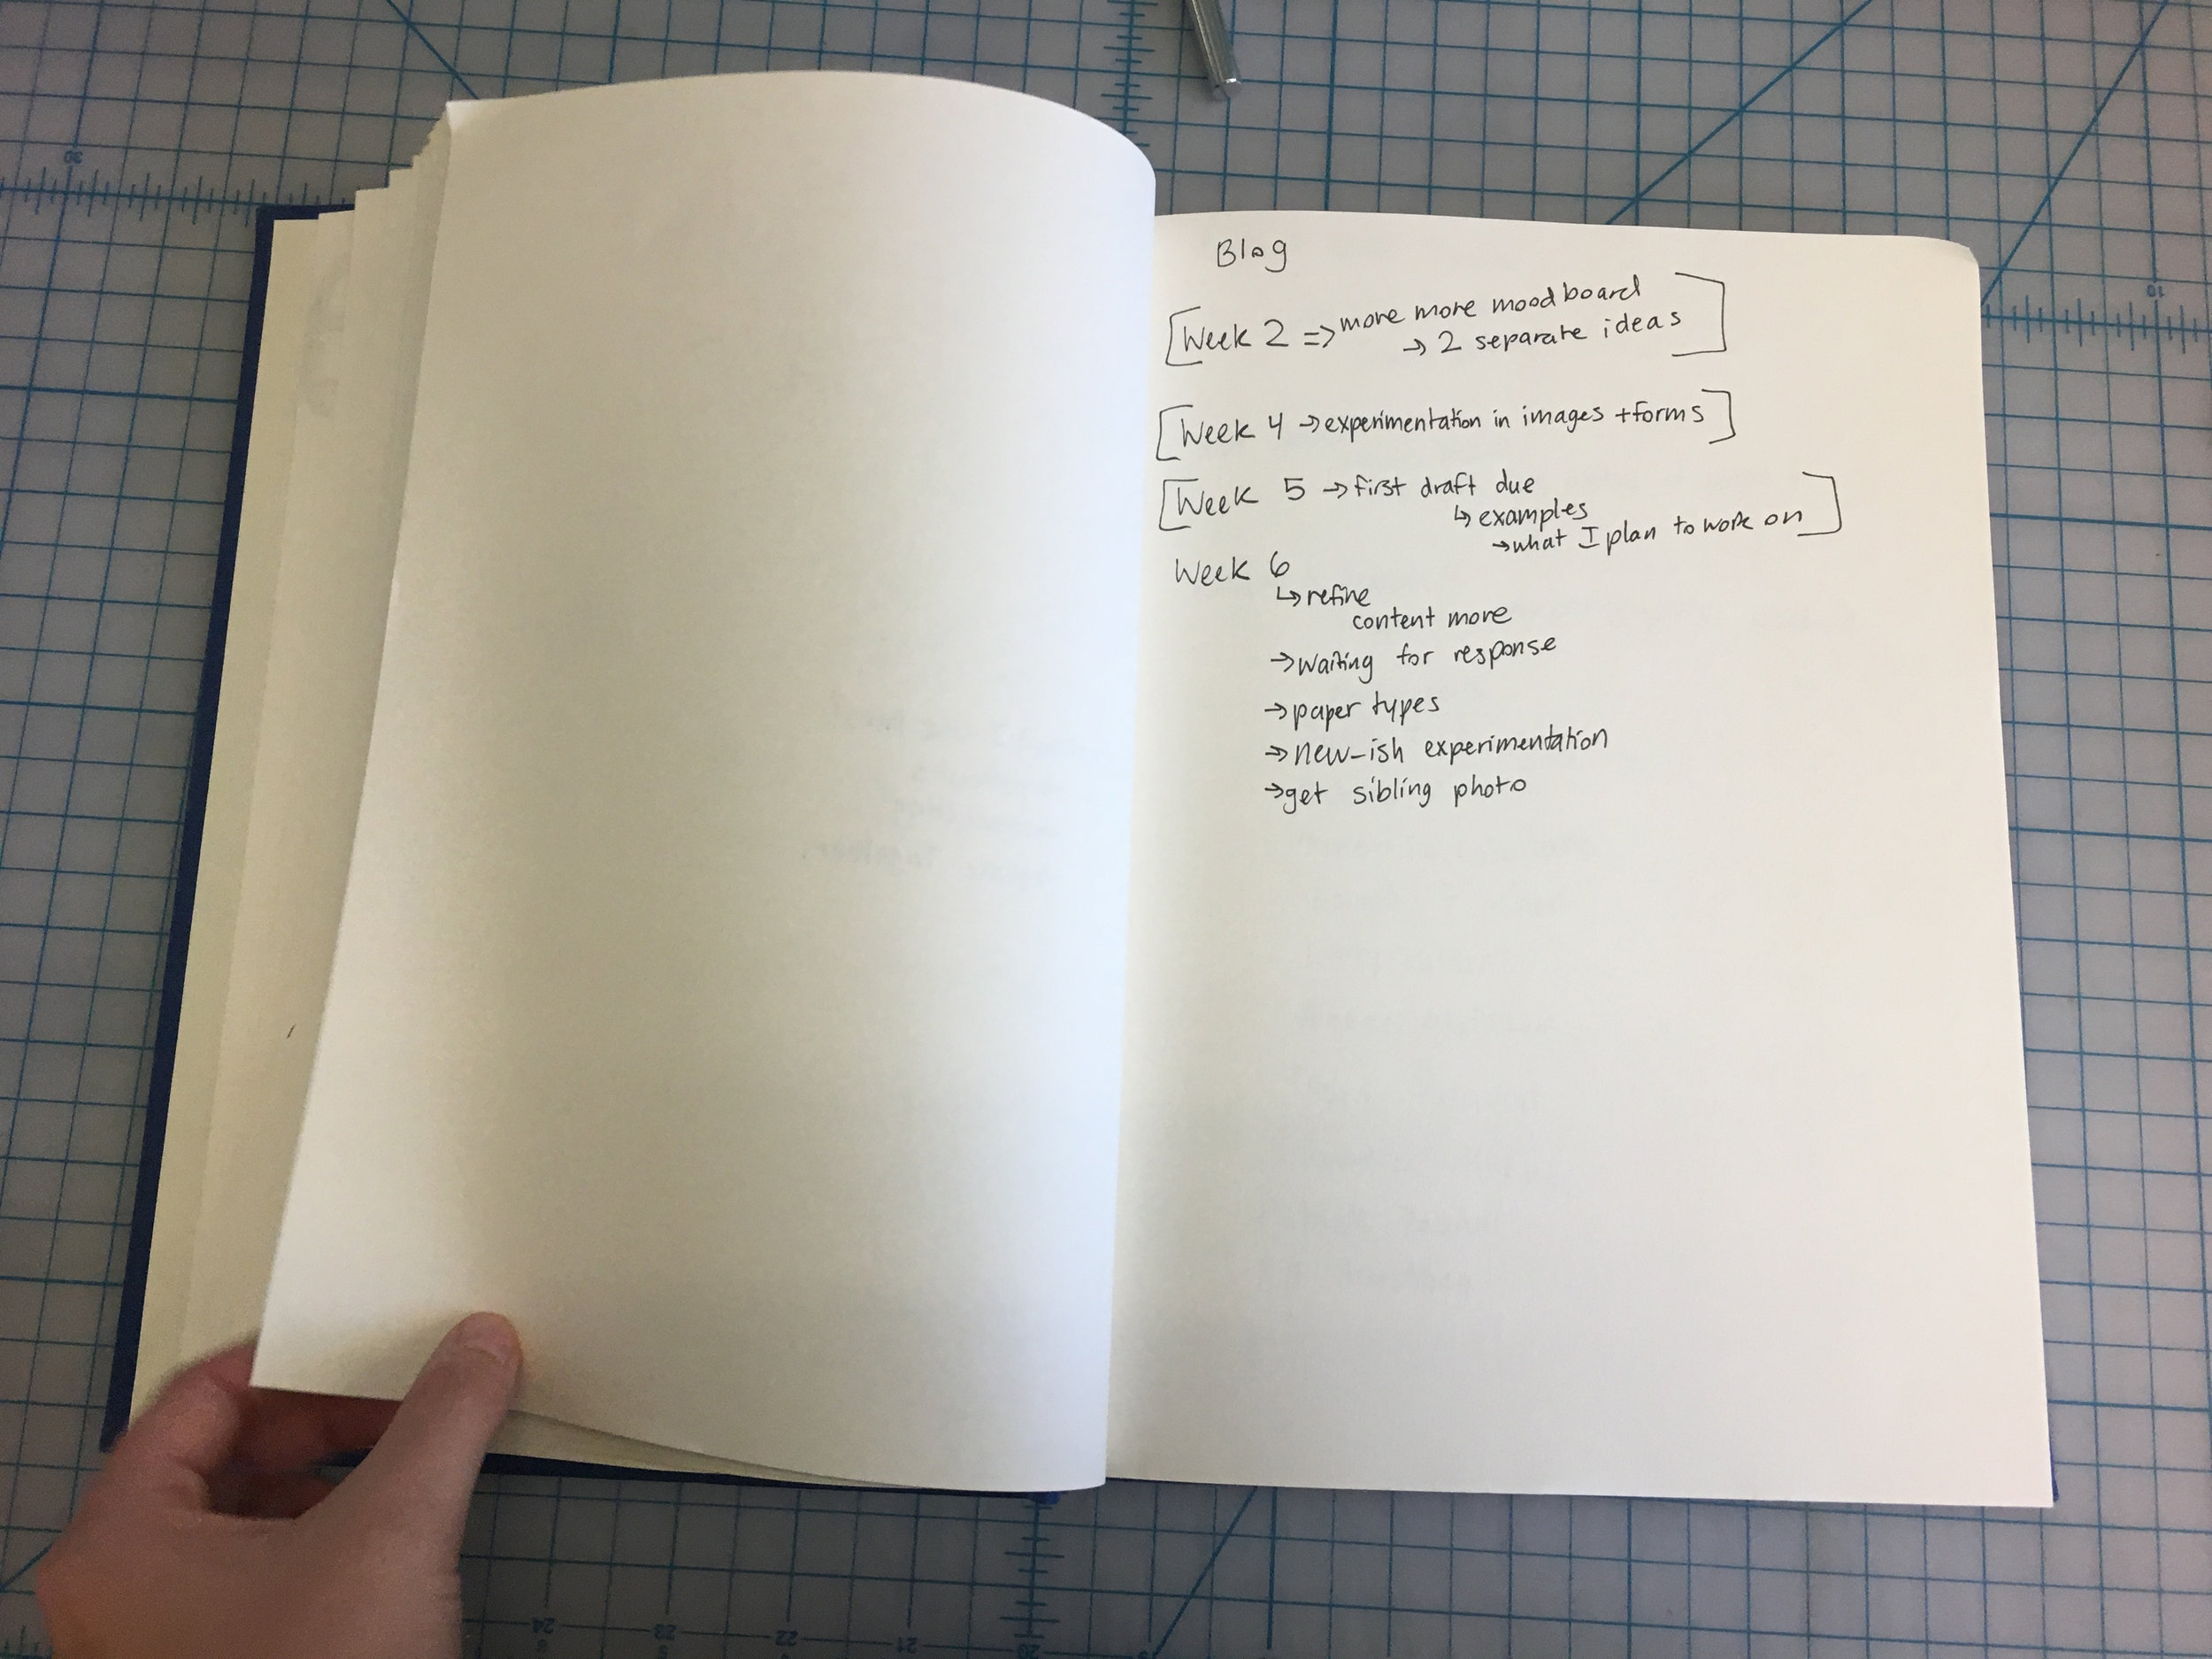 Blog
[Week 2 => more more moodboard
→ 2 separate ideas]
[Week 4 → experimentation in images + forms]
[Week 5 → first draft due
↳ examples
→ what I plan to work on]
Week 6
↳ refine
content more
→ waiting for response
→ paper types
→ new-ish experimentation
→ get sibling photo
30
10
24
23
22
21
20